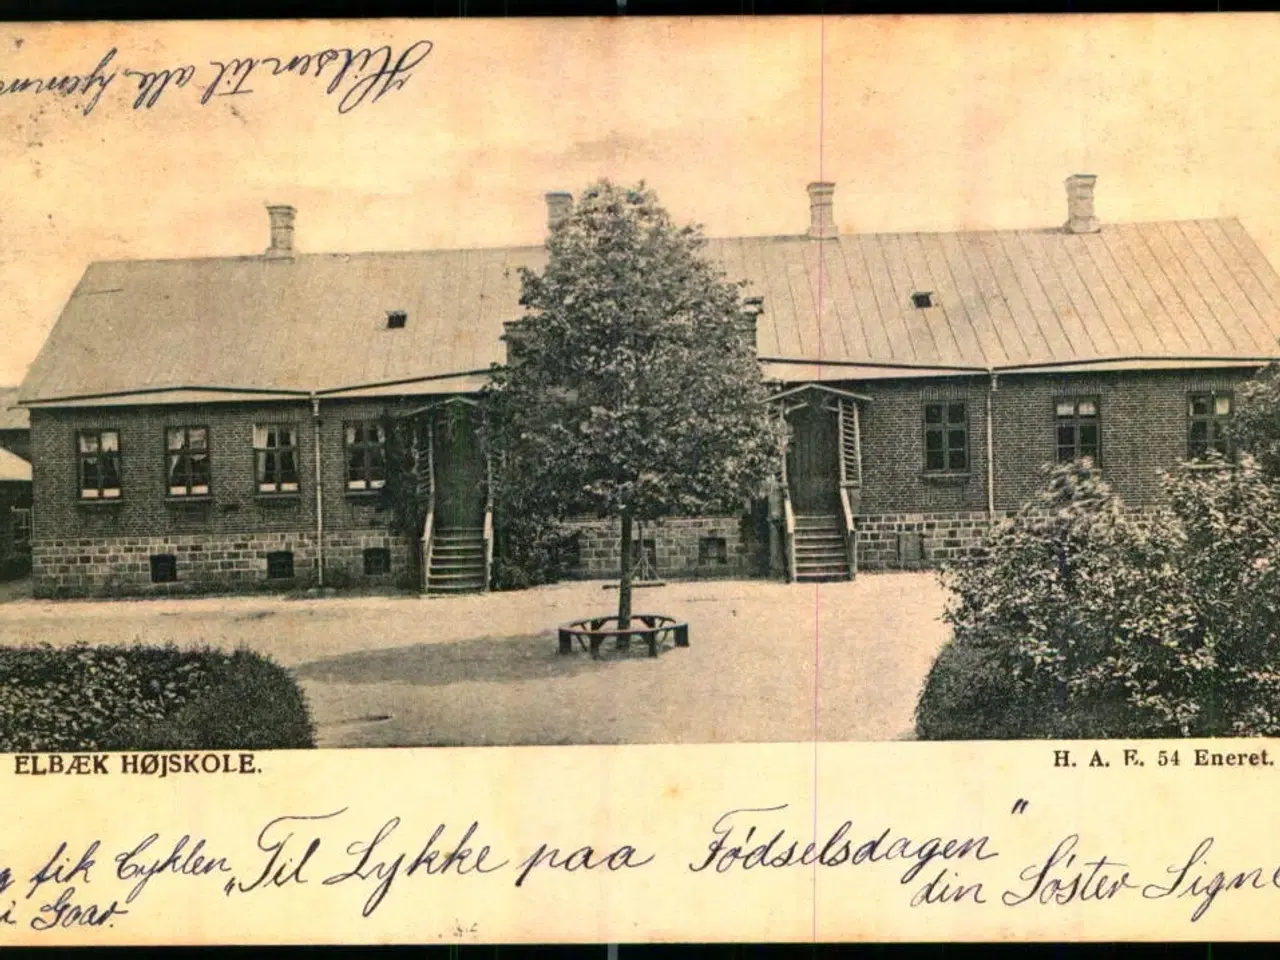 Hilsen til alle hjemme
ELBÆK HØJSKOLE.
H. A. E. 54 Eneret.
fik Cyklen
i Gaar.
„Til Lykke paa Fødselsdagen"
din Søster Signe